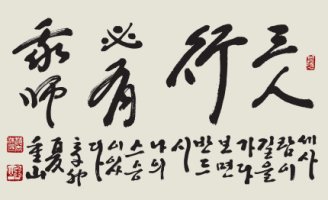 三人
行
必有
我师
세사
람이
길을
가다
보면
반드
시
나의
스승
이있
다
夏
重山